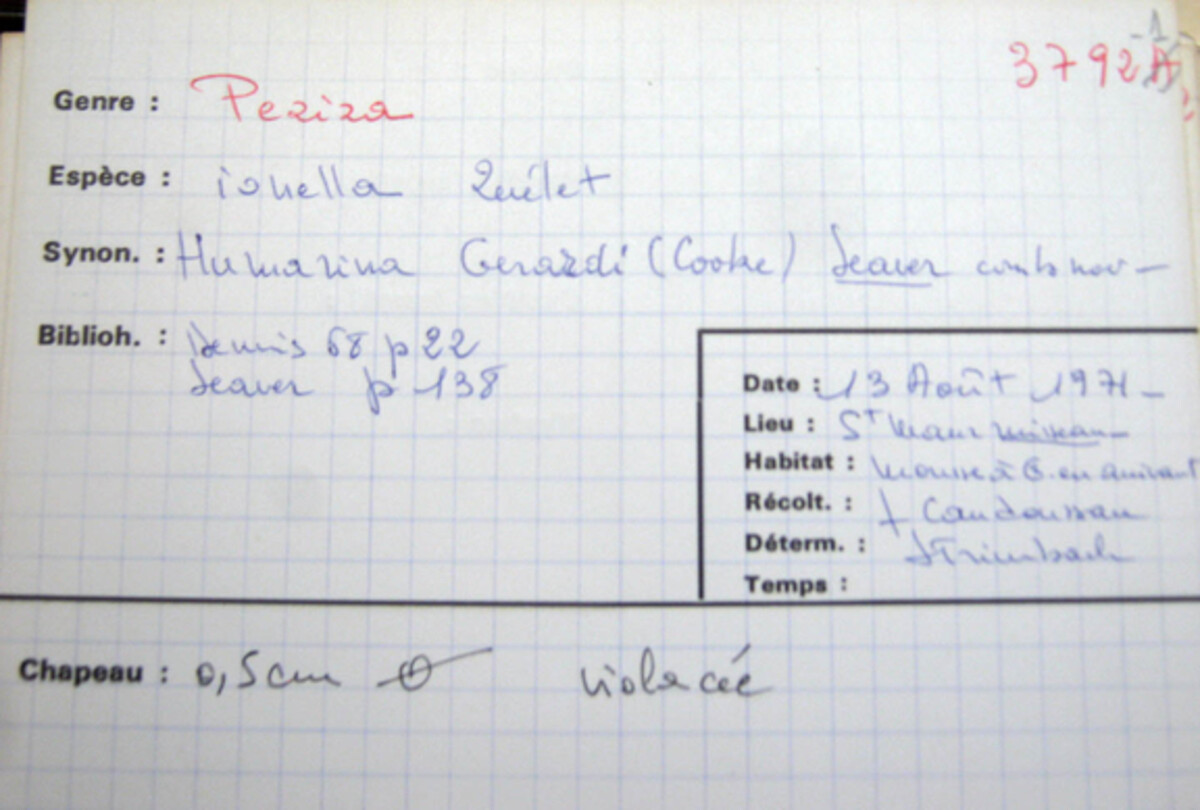 3792
Genre : Peziza
Espèce : ionella Quélet
Synon. : Humarina Gerardi (Cooke) Seaver comb nov -
Biblioh. : Dennis 68 p 22
Seaver p 138
Date : 13 Août 1971 -
Lieu : St
Habitat : en
Récolt. :
Déterm. : J Trimbach
Temps :
Chapeau : 0,5 cm violacé